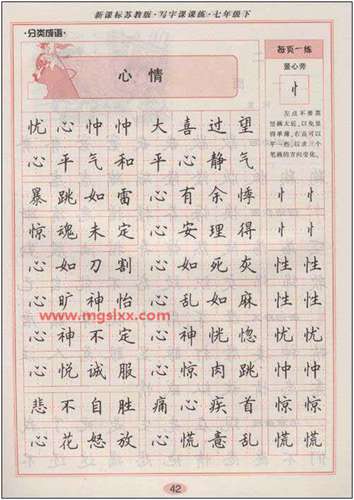 新课标苏教版·写字课课练·七年级下
·分类成语·
心情
每页一练
竖心旁
忄
左点不要离
竖太近，以免显
得单薄，右点可以
平一些，以求三个
笔画的方向变化。
忧心忡忡 大喜过望
心平气和 平心静气
暴跳如雷 心有余悸 忄忄
惊魂未定 心安理得 忄忄
心如刀割 心如死灰 性性
心旷神怡 心乱如麻 性性
www.mgslxx.com
心神不定 心神恍惚 忧忧
心悦诚服 心惊肉跳 忡忡
悲不自胜 痛心疾首 慌慌
心花怒放 心慌意乱 慌慌
42